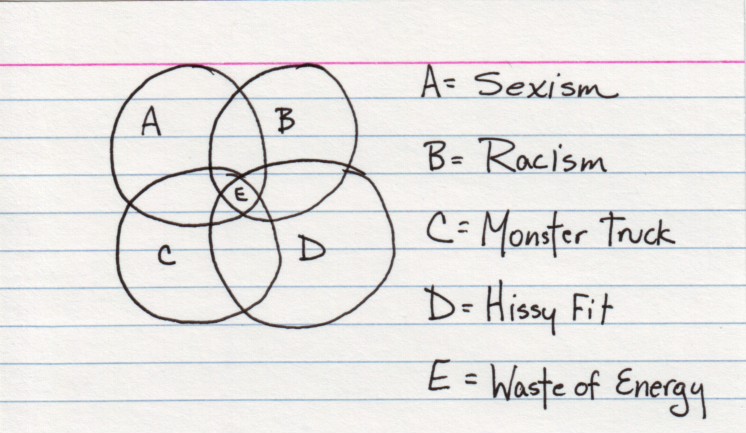 A= Sexism
B= Racism
C= Monster Truck
D= Hissy Fit
E = Waste of Energy
A
B
E
C
D